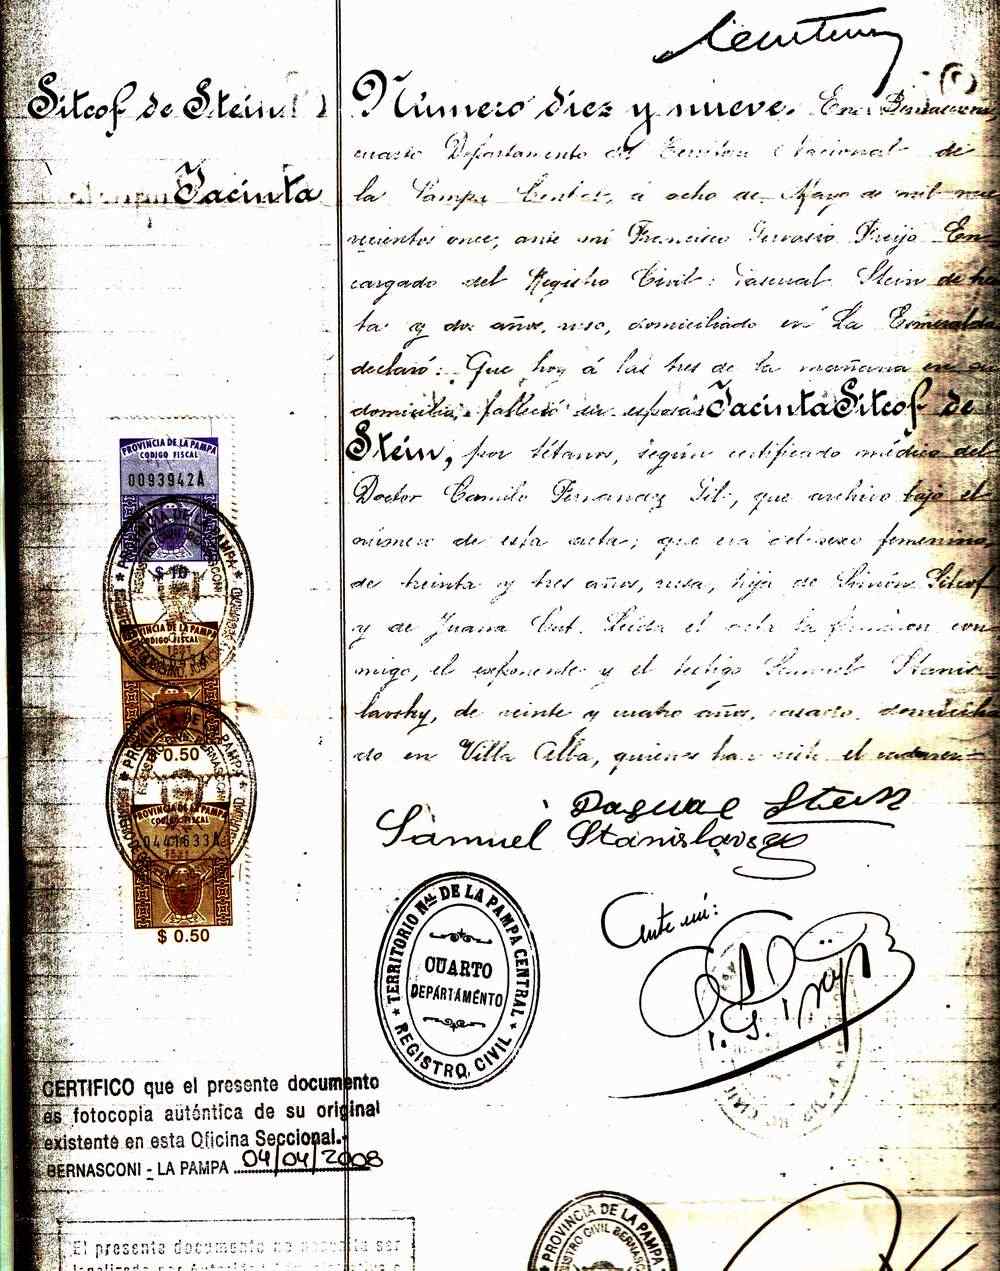 Sitcof de Stein
Jacinta
Número diez y nueve. En Bernasconi
cuarto Departamento del Territorio Nacional de
la Pampa Central, á ocho de Mayo de mil nove
cientos once, ante mi Francisco Gervasio Freijo En-
cargado del Registro Civil: Pascual Stein de trein
ta y dos años, ruso, domiciliado en La Esmeralda
declaró: Que hoy á las tres de la mañana en su
domicilio, falleció su esposa Jacinta Sitcof de
Stein, por tétanos, según certificado médico del
Doctor Camilo Fernandez Gil, que archivo bajo el
número de esta acta; que era del sexo femenino,
de treinta y tres años, rusa, hija de Simón Sitcof
y de Juana. Leida el acta la firmaron con-
migo, el exponente y el testigo Samuel Stanis-
lavsky, de veinte y cuatro años, casado, domicilia
do en Villa Alba, quienes han visto el cadaver.
Pascual Stein
Samuel Stanislavsky
Ante mi:
TERRITORIO Nal. DE LA PAMPA CENTRAL
CUARTO
DEPARTAMENTO
REGISTRO CIVIL
PROVINCIA DE LA PAMPA
CODIGO FISCAL
0093942A
$ 10
PROVINCIA DE LA PAMPA
CODIGO FISCAL
$ 0.50
PROVINCIA DE LA PAMPA
CODIGO FISCAL
0441633A
$ 0.50
CERTIFICO que el presente documento
es fotocopia auténtica de su original
existente en esta Oficina Seccional.-
BERNASCONI - LA PAMPA 04/04/2008
El presente documento no necesita ser
legalizado por Autoridad
PROVINCIA DE LA PAMPA
REGISTRO CIVIL BERNASCONI